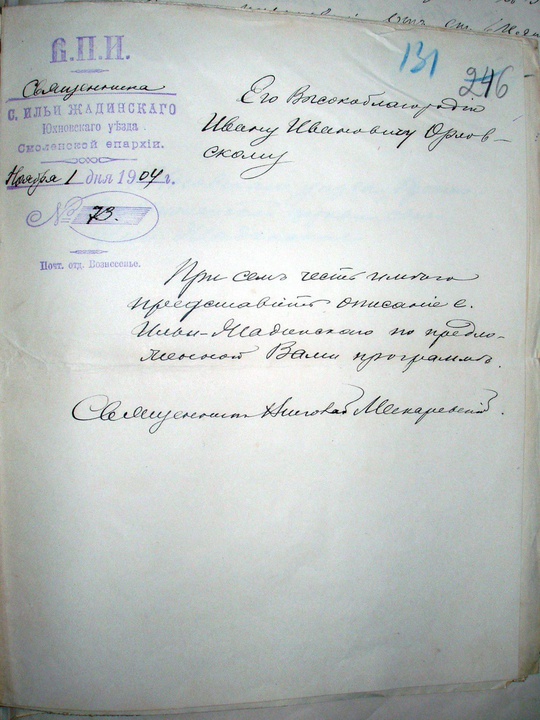 В.П.И.
Священника
С. ИЛЬИ ЖАДИНСКАГО
Юхновскаго уѣзда
Смоленской епархіи.
Ноября 1 дня 1904 г.
№ 73.
Почт. отд. Вознесенье.
131
246
Его Высокоблагородію
Ивану Ивановичу Орлов-
скому
При семъ честь имѣю
представить описаніе с.
Ильи-Жадинскаго по предло-
женной Вами программѣ.
Священникъ